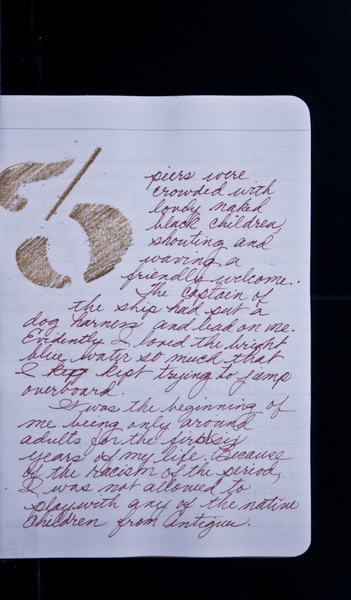 3
piers were
crowded with
lovely naked
black children,
shouting and
waving a
friendly welcome.
The Captain of
the ship had put a
dog harness and lead on me.
Evidently I loved the bright
blue water so much that
I kept trying to jump
overboard.
It was the beginning of
me being only around
adults for the first six
years of my life. Because
of the racism of the period,
I was not allowed to
play with any of the native
children from Antigua.